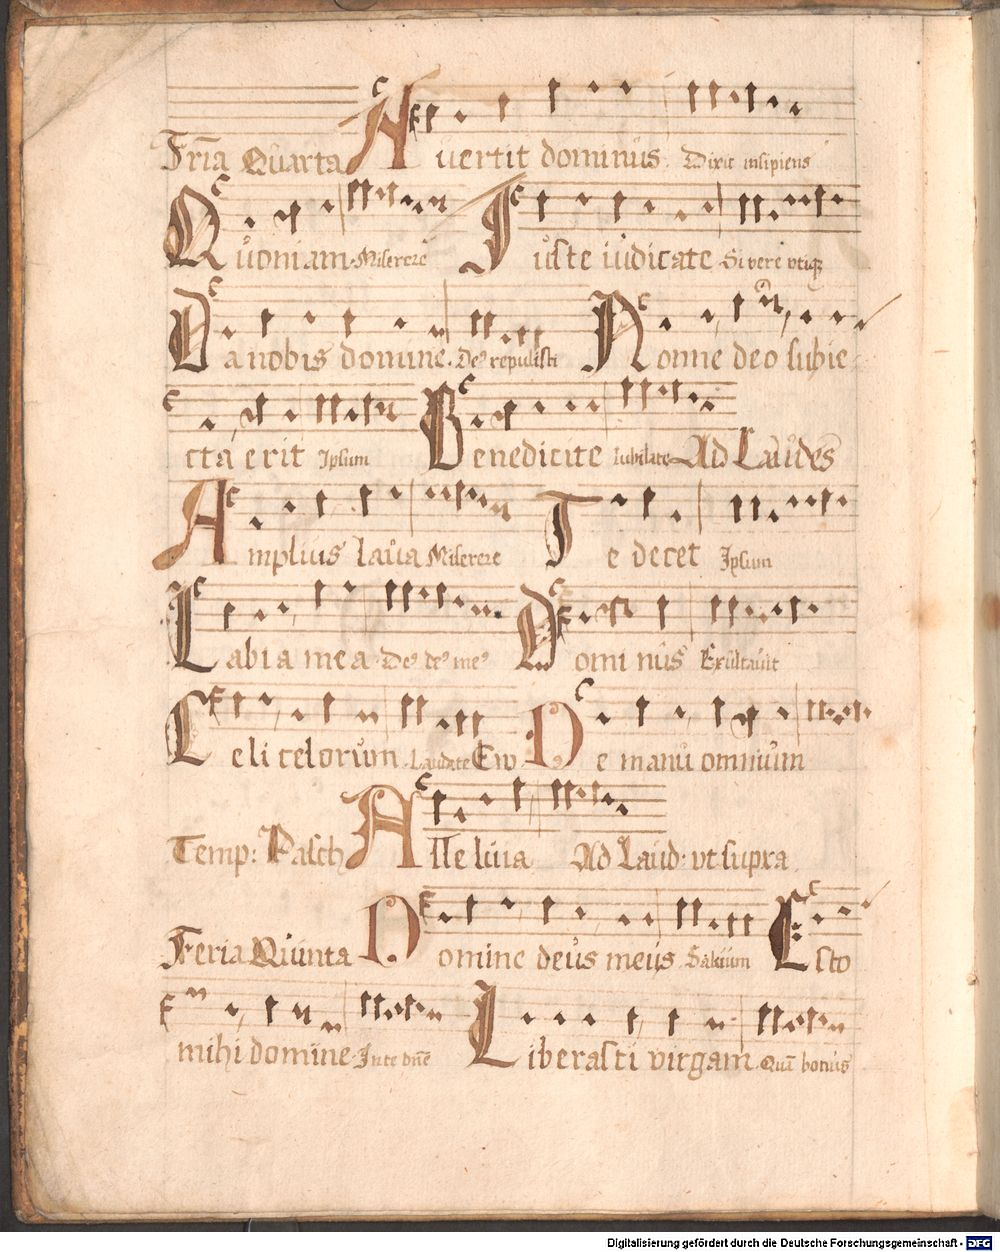 Fria Quarta Avertit dominus. Dixit insipiens
Quoniam. Miserere Iuste iudicate Si vere utiq
Da nobis domine. De9 repulisti Nonne deo subie
cta erit Ipsum Benedicite Iubilate Ad Laudes
Amplius lava Miserere Te decet Ipsum
Labia mea. De9 de9 me9 Dominus Exultavit
Celi celorum. Laudate Ew. De manu omnium
Temp: Pasch Alleluia Ad Laud: ut supra
Feria Quinta Domine deus meus. Salvum Esto
mihi domine. In te dne Liberasti virgam. Qua bonus
Digitalisierung gefördert durch die Deutsche Forschungsgemeinschaft - DFG